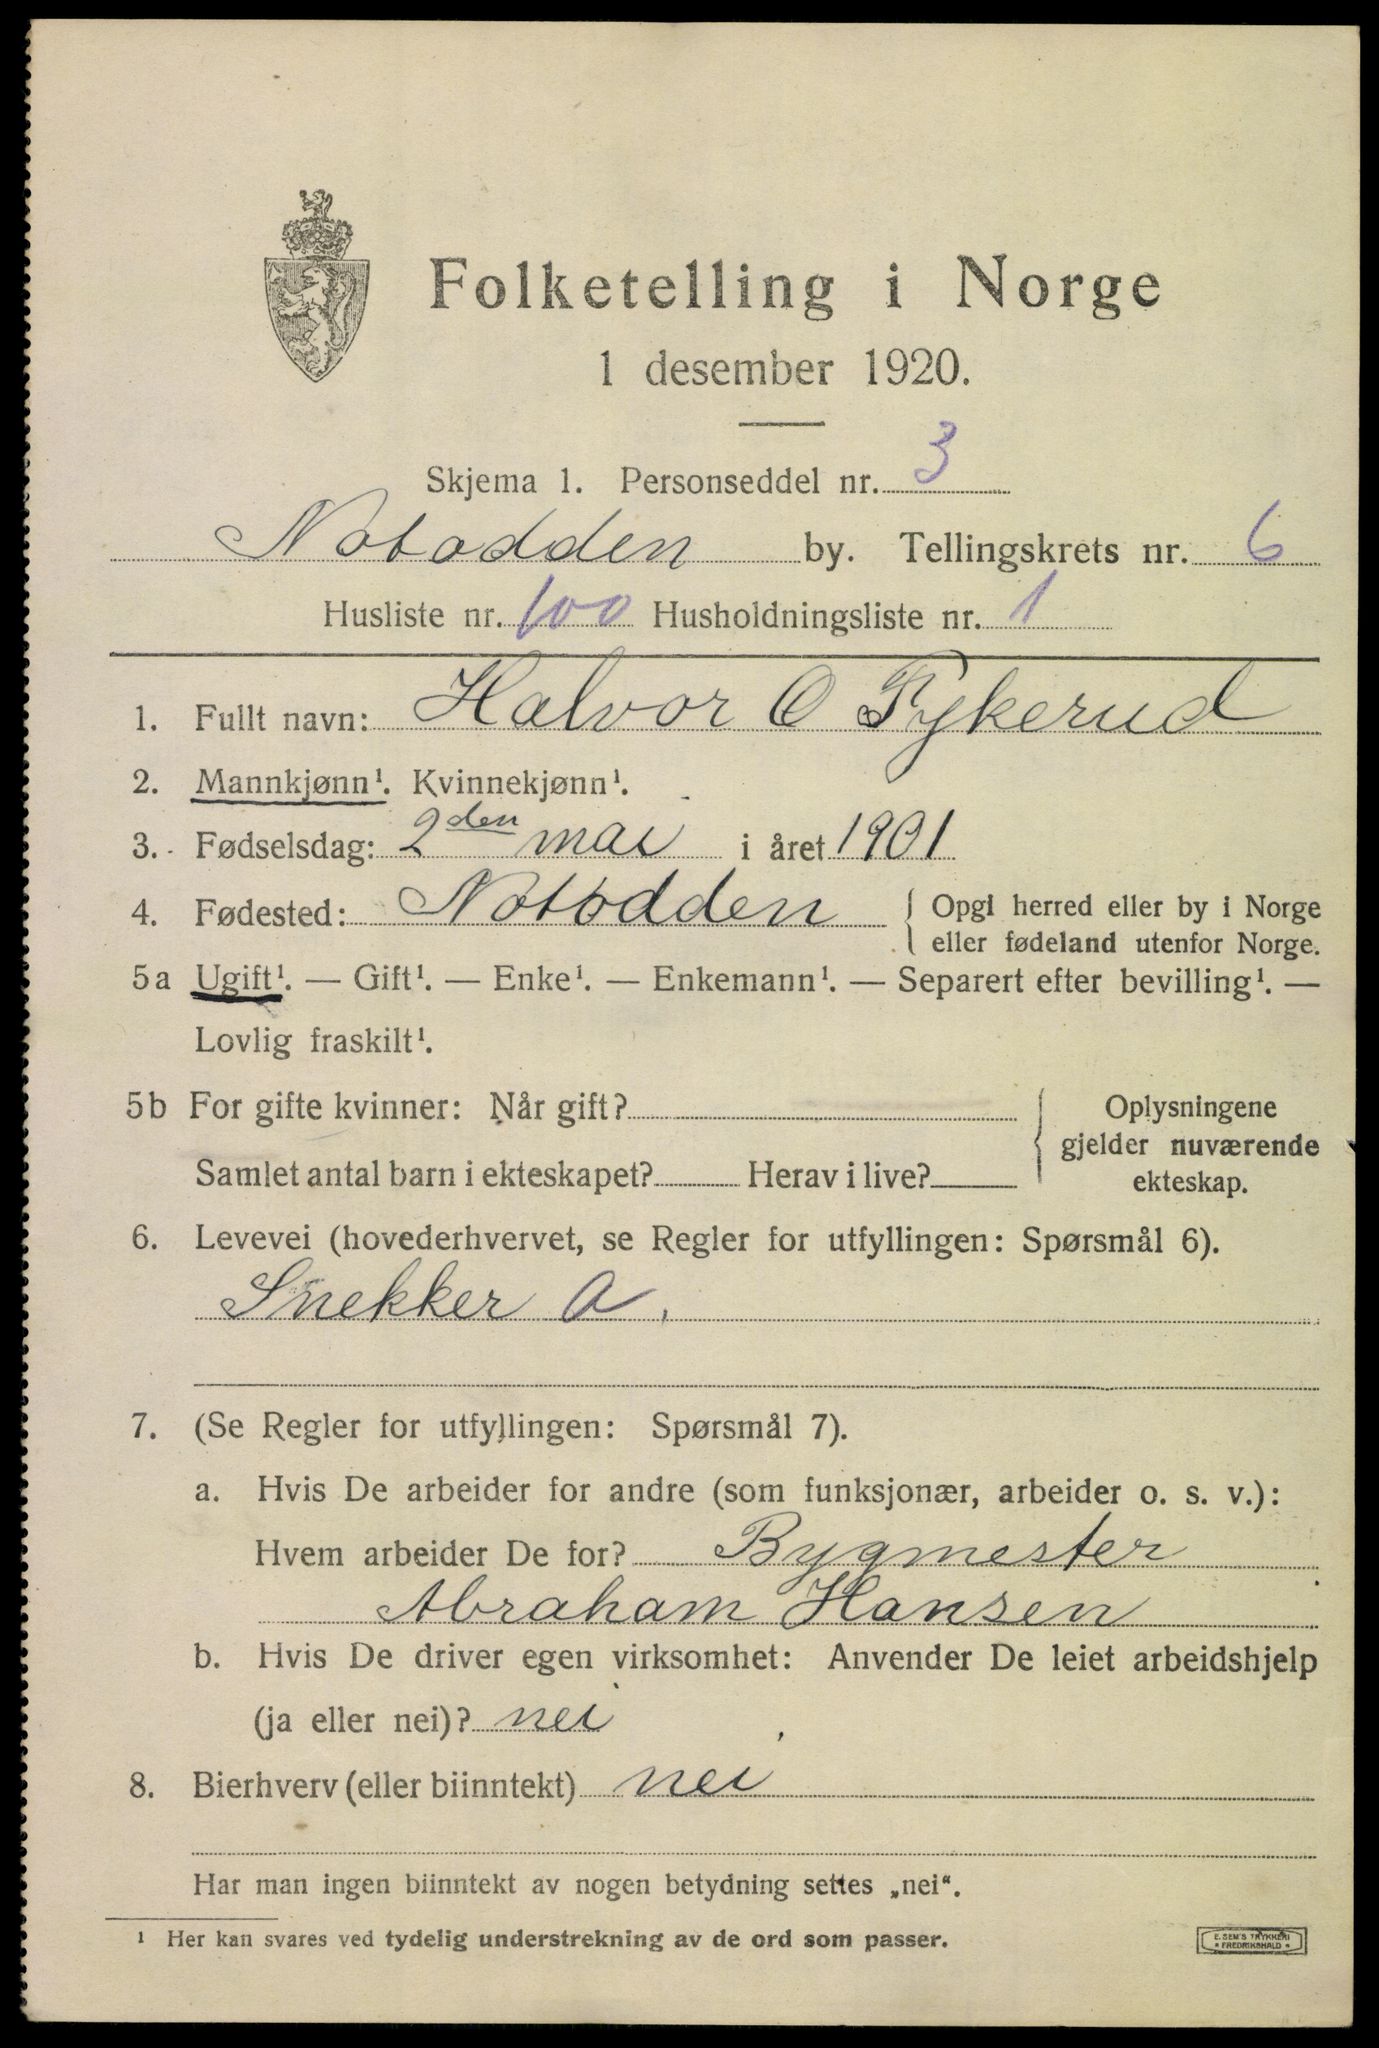 Folketelling i Norge
1 desember 1920.
Skjema 1. Personseddel nr. 3
Notodden by. Tellingskrets nr. 6
Husliste nr. 100 Husholdningsliste nr. 1
1. Fullt navn: Halvor O Tykerud
2. Mannkjønn¹. Kvinnekjønn¹.
3. Fødselsdag: 2den mai i året 1901
4. Fødested: Notodden { Opgi herred eller by i Norge
eller fødeland utenfor Norge.
5a Ugift¹. — Gift¹. — Enke¹. — Enkemann¹. — Separert efter bevilling¹. —
Lovlig fraskilt¹.
5b For gifte kvinner: Når gift? { Oplysningene
gjelder nuværende
Samlet antal barn i ekteskapet? Herav i live? ekteskap.
6. Levevei (hovederhvervet, se Regler for utfyllingen: Spørsmål 6).
Snekker a.
7. (Se Regler for utfyllingen: Spørsmål 7).
a. Hvis De arbeider for andre (som funksjonær, arbeider o. s. v.):
Hvem arbeider De for? Bygmester
Abraham Hansen
b. Hvis De driver egen virksomhet: Anvender De leiet arbeidshjelp
(ja eller nei)? nei
8. Bierhverv (eller biinntekt) nei
Har man ingen biinntekt av nogen betydning settes „nei“.
¹ Her kan svares ved tydelig understrekning av de ord som passer.
E. SEM'S TRYKKERI
• FREDRIKSHALD •